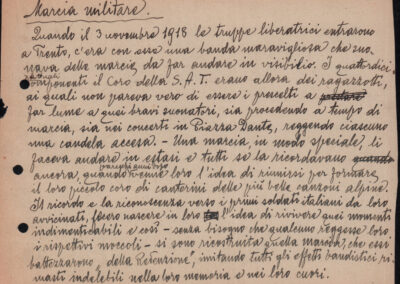 Marcia militare.
Quando il 3 novembre 1918 le truppe liberatrici entrarono
a Trento, c'era con esse una banda meravigliosa che suo-
nava delle marcie da far andare in visibilio. I quattordici
attuali
componenti il Coro della S.A.T. erano allora dei ragazzotti,
ai quali non pareva vero di essere i prescelti a
far lume a quei bravi suonatori, sia procedendo a tempo di
marcia, sia nei concerti in Piazza Dante, reggendo ciascuno
una candela accesa. - Una marcia, in modo speciale, li
faceva andare in estasi e tutti se la ricordavano quando
ancora, quando venne loro l'idea di riunirsi per formare
il loro piccolo coro di cantorini delle più belle canzoni alpine.
Il ricordo e la riconoscenza verso i primi soldati italiani da loro
avvicinati, fecero nascere in loro l'idea di rivivere quei momenti
indimenticabili e così - senza bisogno che qualcuno reggesse loro
i rispettivi moccoli - si sono ricostruita quella marcia, che essi
battezzarono "della Redenzione", imitando tutti gli effetti bandistici ri-
masti indelebili nella loro memoria e nei loro cuori.